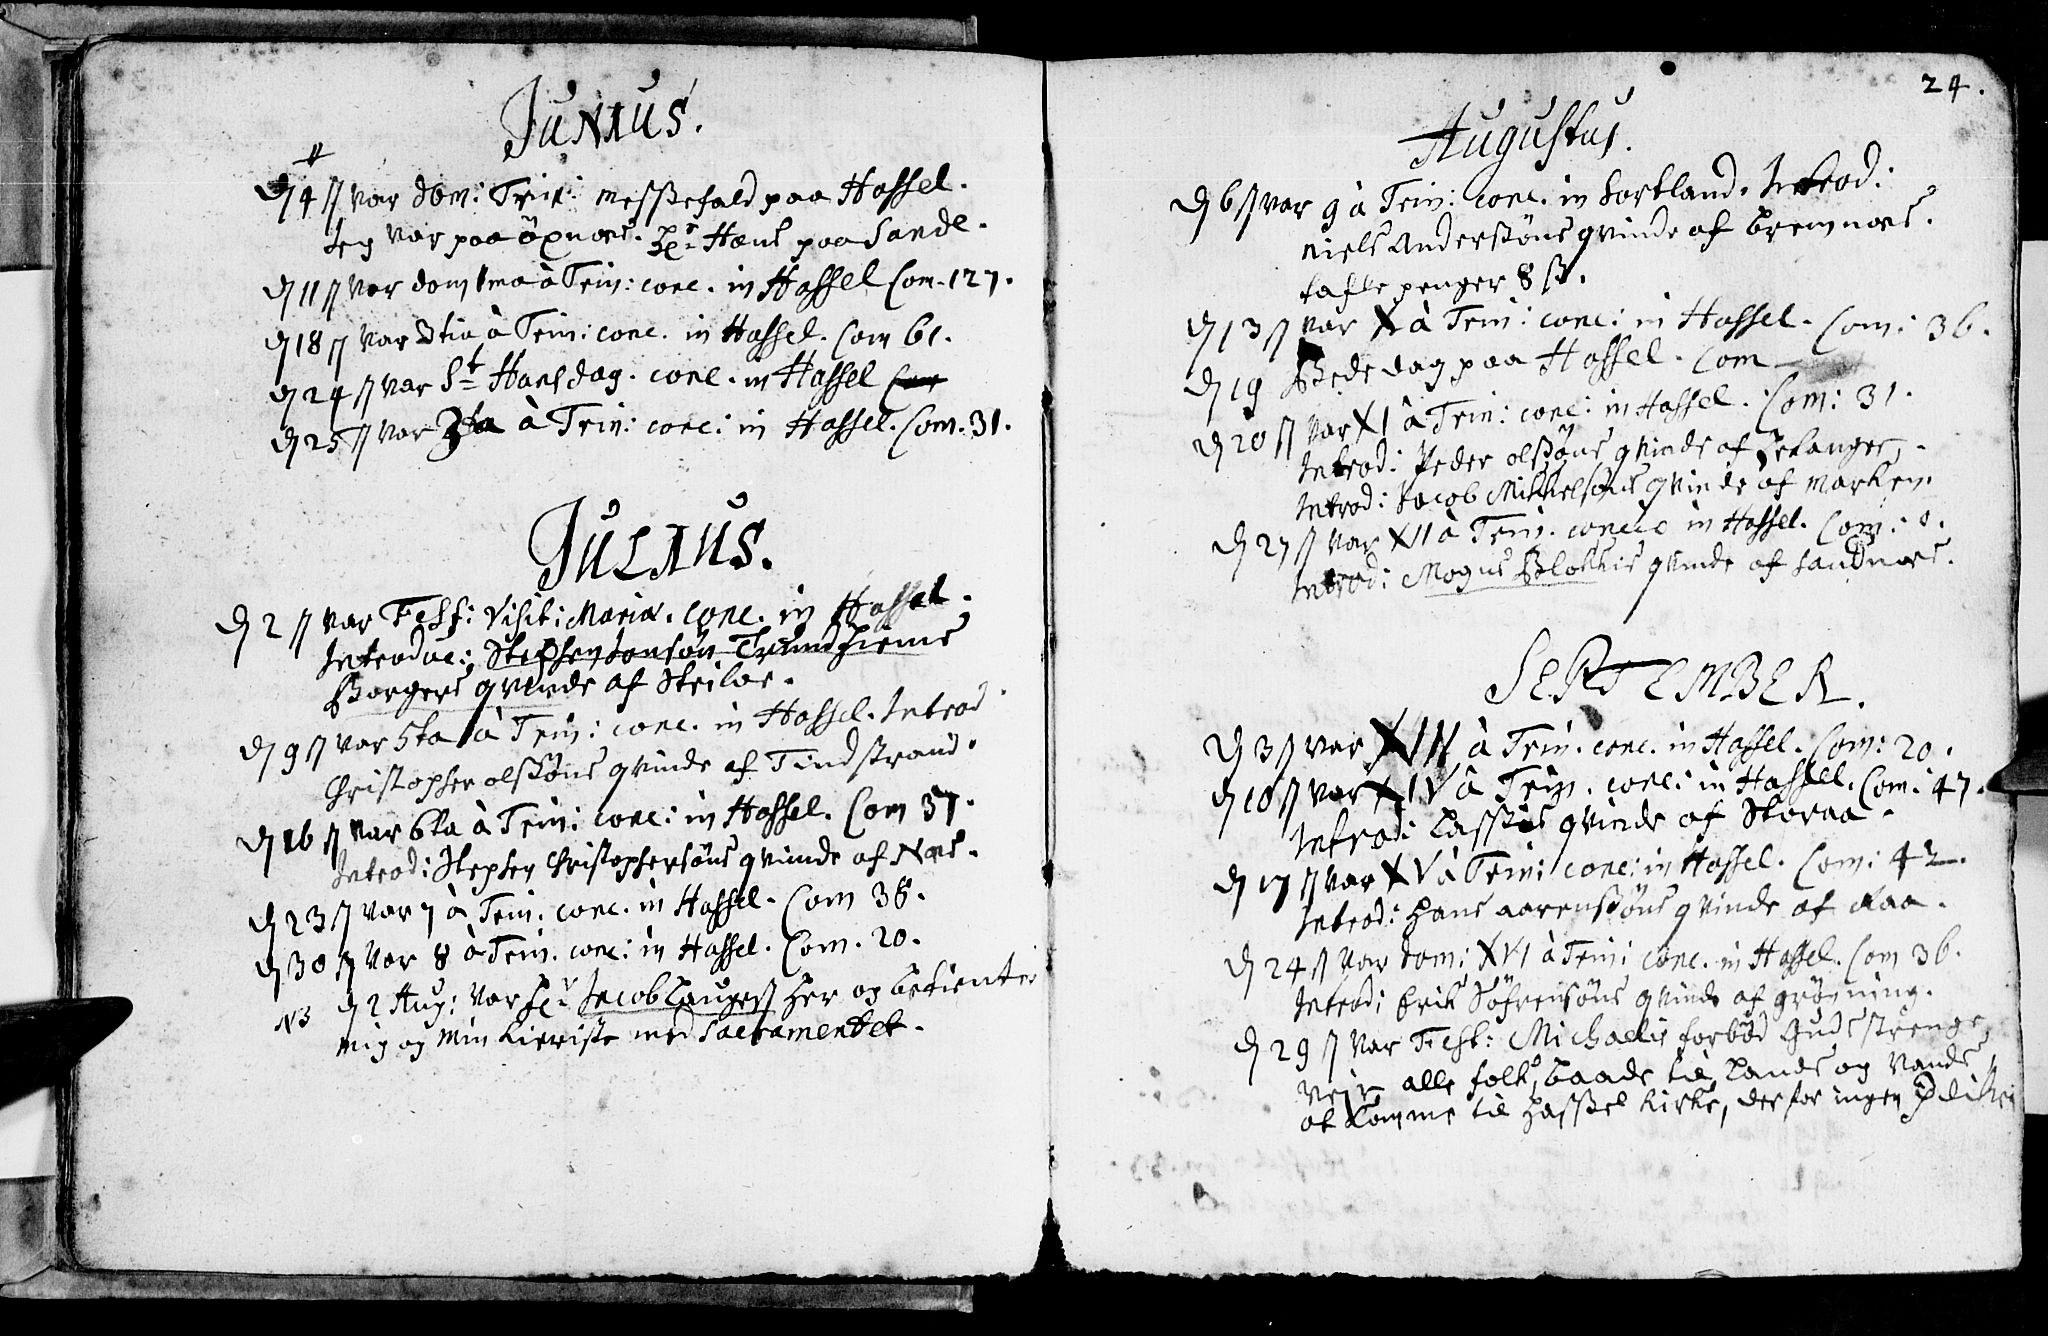 Junius.
d 4 var dom: Trin: messefald paa Hassel.
Jeg var paa öxnæs. Hr Hans paa Sande.
d 11 var dom 1ma à Trin: conc. in Hassel Com. 127.
d 18 var 3tia à Trin: conc. in Hassel. Com 61.
d 24 var St Hans dag. conc. in Hassel Com
d 25 var à Trin: conc: in Hassel. Com. 31.
Julius.
d 2 var Fest: Visit: Mariæ. conc. in Hassel.
Introduc: Stephen Jonsøn Trundhiems
Borgers qvinde af Skiloe.
d 9 var 5ta à Trin: conc. in Hassel. Introd
Christopher olssöns qvinde af Tindstrand.
d 16 var 6ta à Trin: conc: in Hassel. Com 37.
Introd: Stephen Christophersöns qvinde af Næs.
d 23 var 7 à Trin. conc. in Hassel. Com 38.
d 30 var 8 à Trin. conc: in Hassel. Com. 20.
NB d 2 Aug: var Hr Jacob Lauges her og betiente
mig og min kieriste med Sacramentet.
24.
Augustus.
d 6 var 9 à Trin: conc. in Sortland. Introd:
Niels Anderssöns qvinde af Bremnæs.
tafle penger 8 ß.
d 13 var X à Trin: conc: in Hassel. Com: 36.
d 19 Bededag paa Hassel. Com
d 20 var XI à Trin: conc: in Hassel. Com: 31.
Introd: Peder olssöns qvinde af
Introd: Jacob Mikkelsöns qvinde af Marken.
d 27 var XII à Trin. conc in Hassel. Com: 0.
Introd: Mogns Blokkis qvinde af Sandnæs.
SEPTEMBER.
d 3 var XIII à Trin. conc. in Hassel. Com: 20.
d 10 var XIV à Trin. conc: in Hassel. Com: 47.
Introd: Lasses qvinde af Storaa.
d 17 var XV à Trin: conc: in Hassel. Com: 42.
Introd: Hans aarenssöns qvinde af Raa.
d 24 var dom: XVI à Trin: conc. in Hassel. Com 36.
Introd: Erik Söfrensöns qvinde af gröyning.
d 29 var Fest: Michaelis forböd Guds strenge
veir alle folk, baade til Lands og Vands
at komme til Hassel kirke, derfor ingen